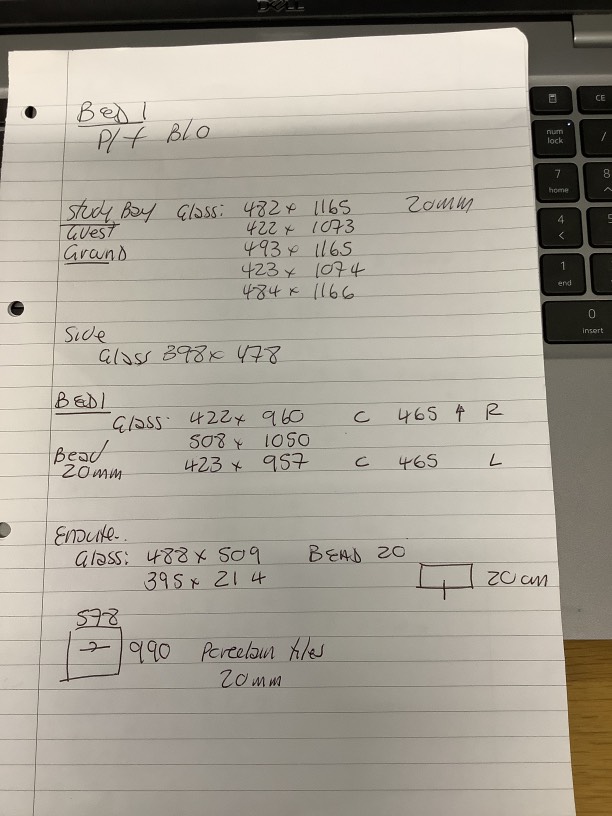 DELL
BED 1
P/f B/O
Study Bay Glass: 482 x 1165 20mm
Guest 422 x 1073
Ground 493 x 1165
423 x 1074
484 x 1166
Side
Glass 398 x 478
BED 1
Glass: 422 x 960 C 465 ↑ R
508 x 1050
Bead 423 x 957 C 465 L
20mm
Ensuite.
Glass: 488 x 509 BEAD 20
395 x 214 20cm
578
990 Porcelain tiles
20mm
CE
num lock /
7 home 8
4 <
1 end
0 insert